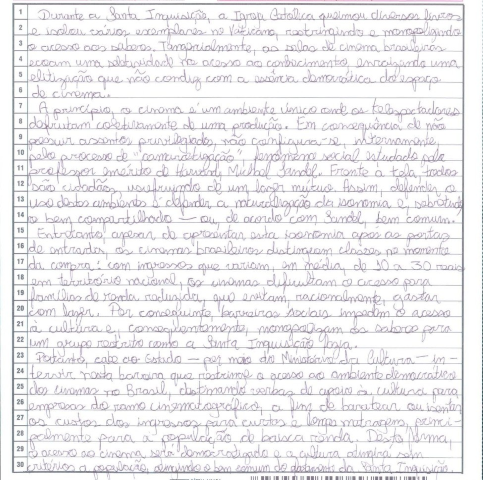 1 Durante a Santa Inquisição, a Igreja Católica queimou diversos livros
2 e isolou vários exemplares no Vaticano, restringindo e monopolizando
3 o acesso aos saberes. Temporialmente, as salas de cinema brasileiras
4 ecoam uma seletividade no acesso ao conhecimento, enraizando uma
5 elitização que não condiz com a essência democrática do espaço
6 de cinema.
7 A princípio, o cinema é um ambiente único onde os telespectadores
8 desfrutam coletivamente de uma produção. Em consequência de não
9 possuir assentos privilegiados, não configura-se, internamente,
10 pelo processo de "camarotização", fenômeno social estudado pelo
11 professor emérito de Harvard, Michel Sandel. Frente à tela, todos
12 são cidadãos, usufruindo de um lazer mútuo. Assim, defender o
13 uso destes ambientes é defender a naturalização da isonomia e, sobretudo,
14 o bem compartilhado — ou, de acordo com Sandel, bem comum.
15 Entretanto, apesar de apresentar esta isonomia após as portas
16 de entrada, os cinemas brasileiros distinguem classes no momento
17 da compra: com ingressos que variam, em média, de 10 a 30 reais
18 em território nacional, os cinemas dificultam o acesso para
19 famílias de renda reduzida, que evitam, racionalmente, gastar
20 com lazer. Por conseguinte, barreiras sociais impedem o acesso
21 à cultura e, consequentemente, monopolizam os saberes para
22 um grupo restrito como a Santa Inquisição fazia.
23 Portanto, cabe ao Estado — por meio do Ministério da Cultura — in-
24 tervir nesta barreira que restringe o acesso ao ambiente democrático
25 dos cinemas no Brasil, destinando verbas de apoio à cultura para
26 empresas do ramo cinematográfico, a fim de baratear ou isentar
27 os custos dos ingressos para curtas e longa-metragens, princi-
28 palmente para a população de baixa renda. Desta forma,
29 o acesso ao cinema será democratizado e a cultura atingirá sem
30 critérios a população, atingindo o bem comum do Santa Inquisição.